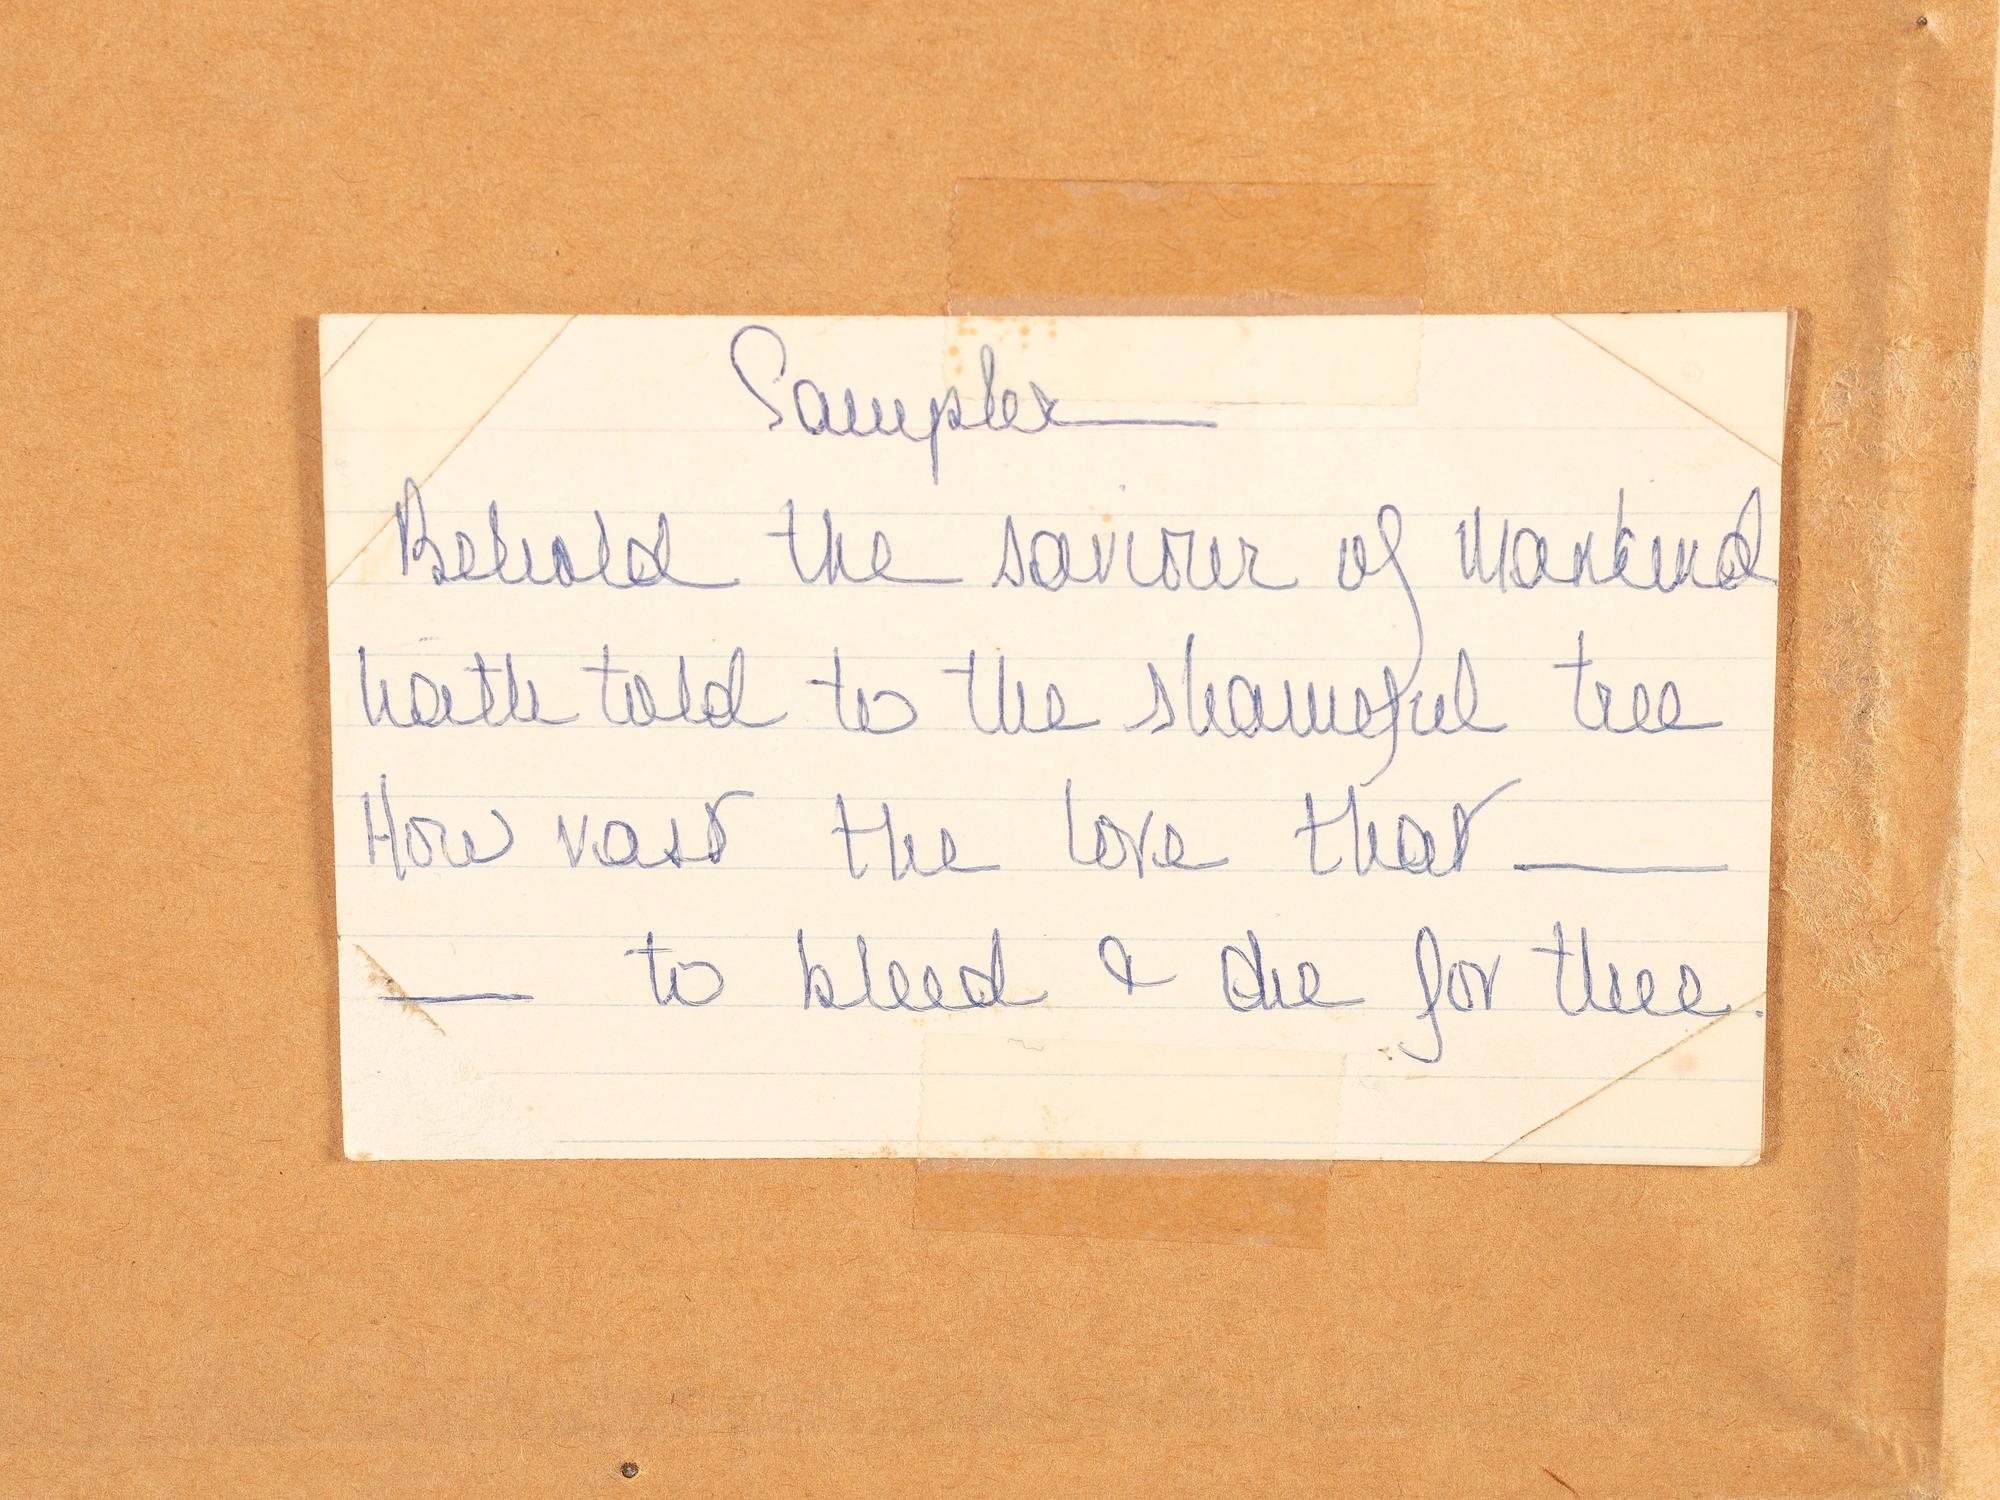 Sampler
Behold the saviour of Mankind
hath told to the shameful tree
How vast the love that —
— to bleed & die for thee.